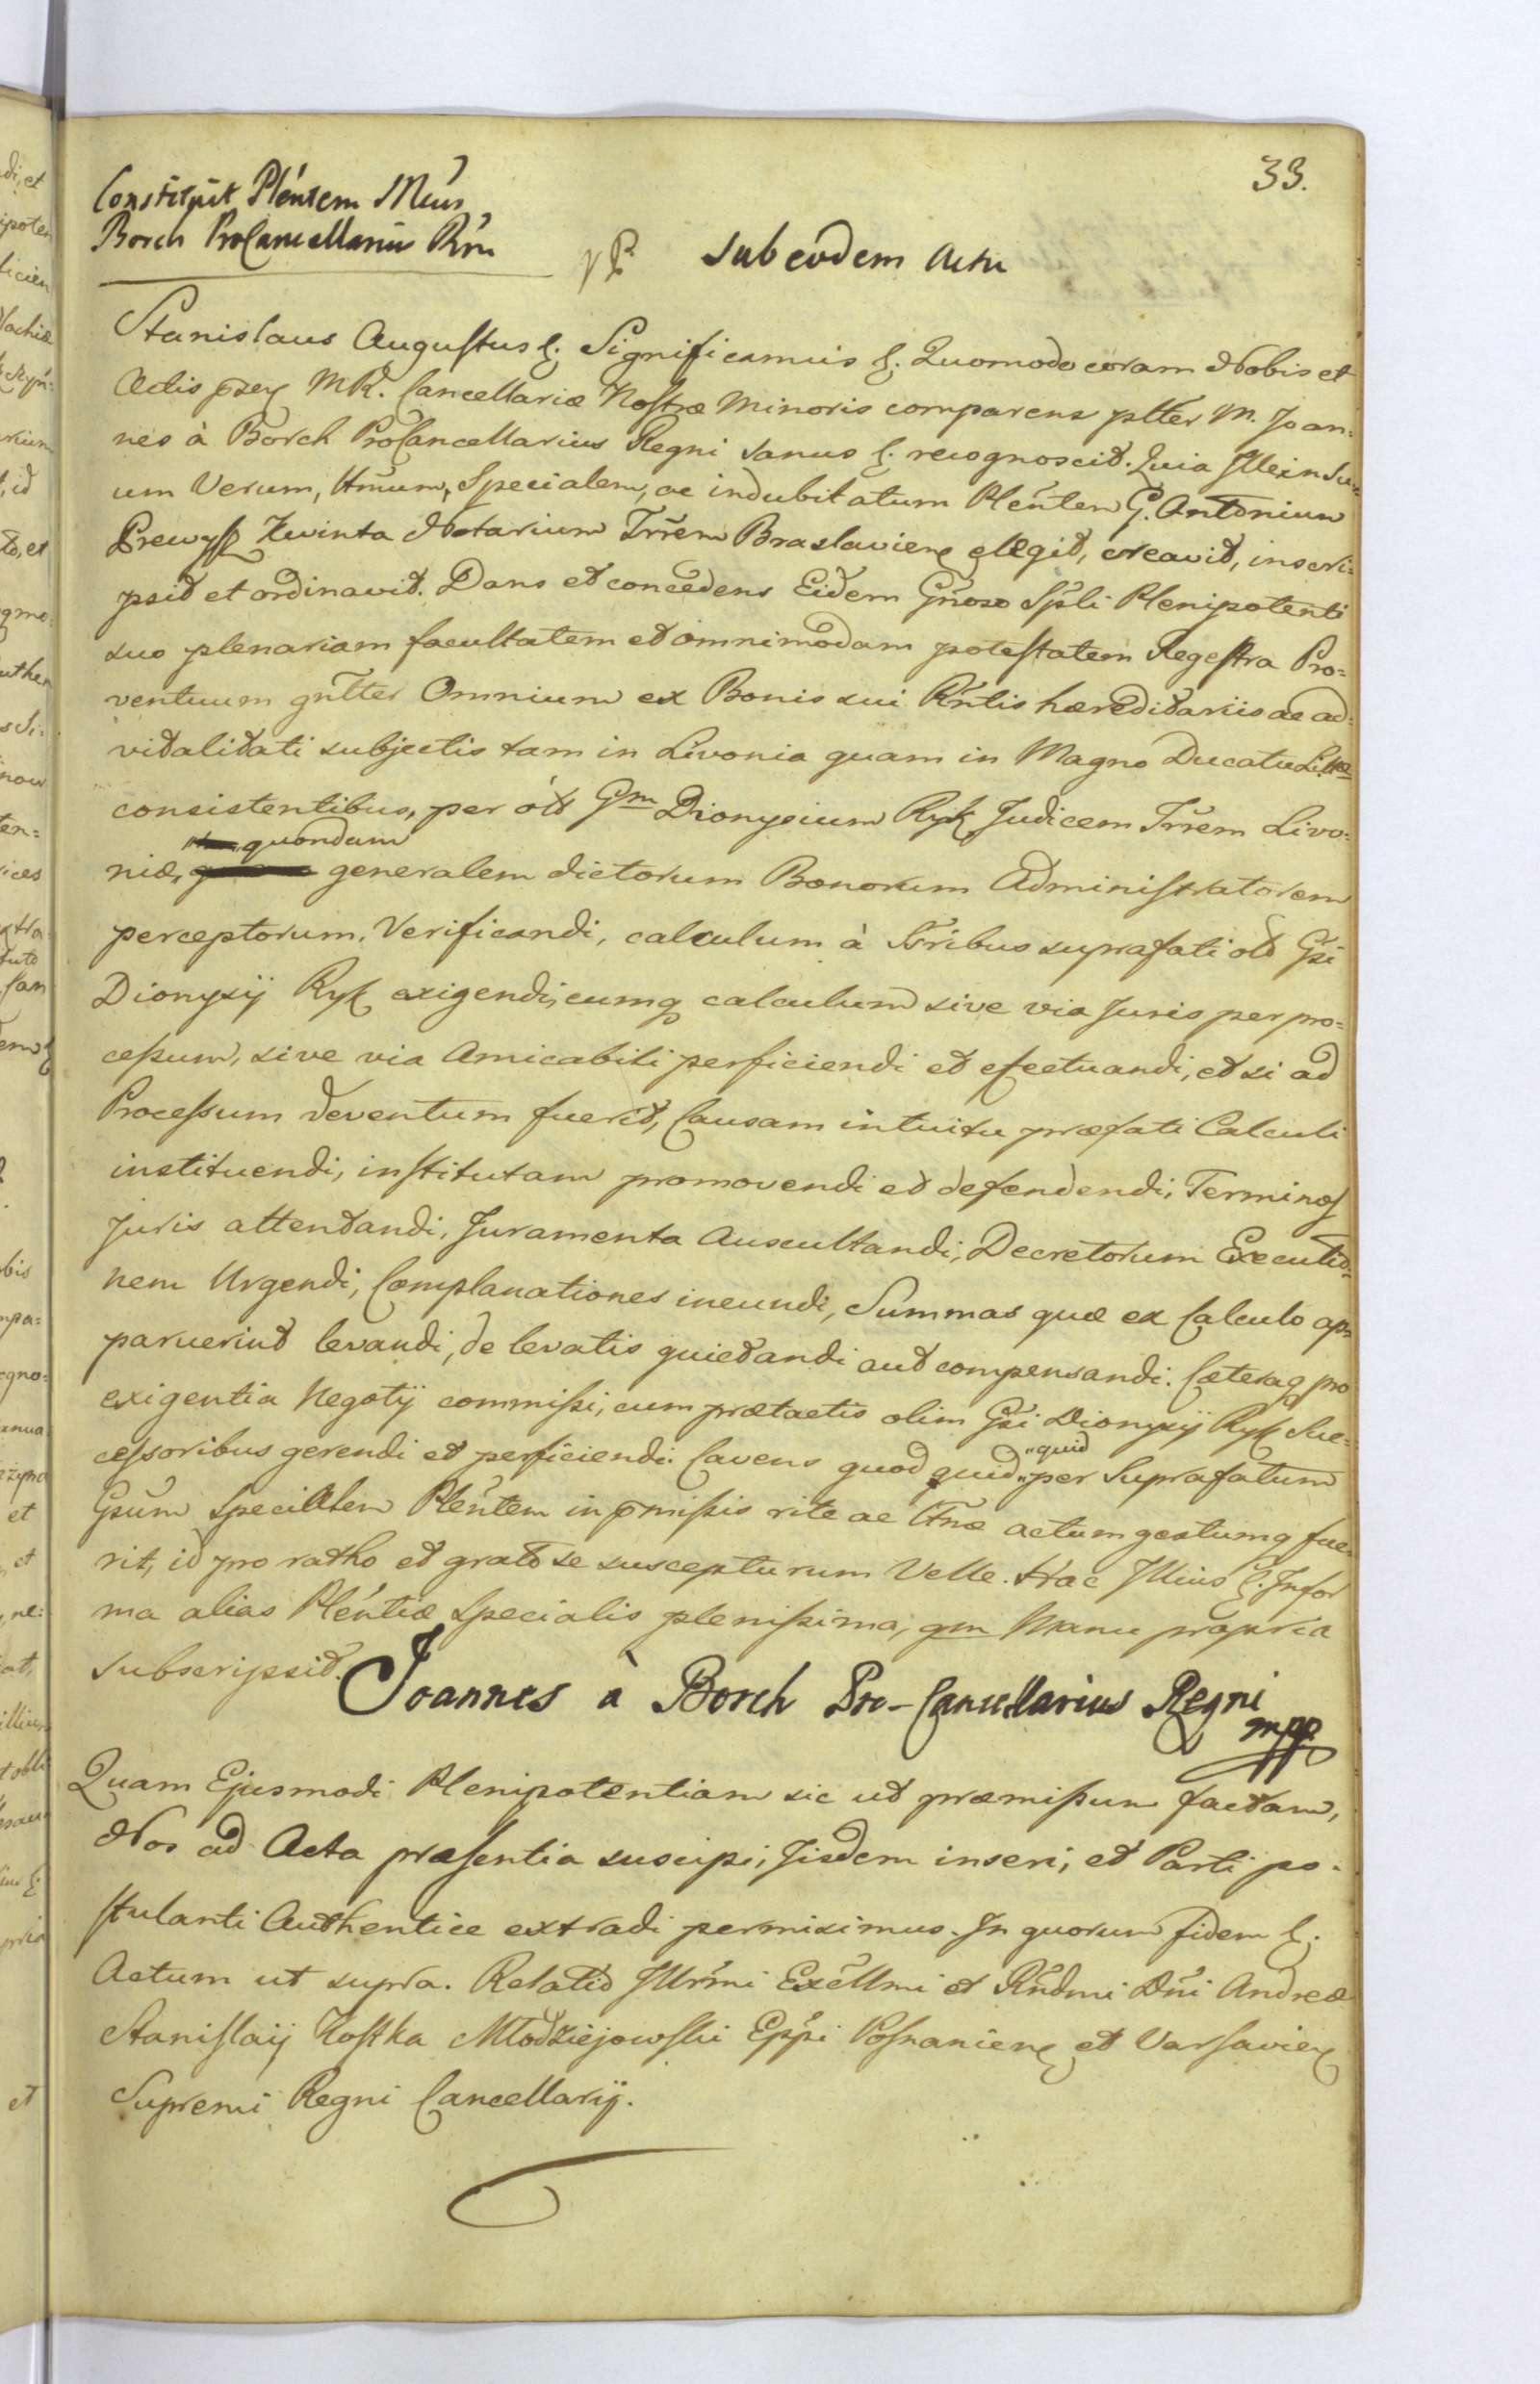 33.
Constituit Plentem Mcus
Borch ProCancellarius Rni
Sub eodem Actu
Stanislaus Augustus &. Significamus &. Quomodo coram Nobis et
Actis pseȝ MR. Cancellariæ Nostræ Minoris comparens plter M. Joan:
nes à Borch ProCancellarius Regni sanus &. recognoscit. Quia Ille in Su:
um Verum, Lttmum, Specialem, ac indubitatum Plentem G. Antonium
Prewysz Kwinta Notarium Trrem Braslavien elegit, creavit, inscri:
psit et ordinavit. Dans et concedens Eidem Gnoso Spli Plenipotenti
suo plenariam facultatem et omnimodam potestatem Regestra Pro:
ventuum gnlter Omnium ex Bonis sui Rntis hæreditariis ac ad:
vitalitati subjectis tam in Livonia quam in Magno Ducatu Litt̄æ
consistentibus, per olt Gm Dionysium Ryk Judicem Trrem Livo:
niæ, quondam generalem dictorum Bonorum Administratorem
perceptorum, Verificandi, calculum à Ssribus suprafati olt Gsi
Dionysij Ryk exigendi, eumq calculum sive via Juris per pro:
cessum, sive via Amicabili perficiendi et efectuandi, et si ad
Processum deventum fuerit, Causam intuitu præfati Calculi
instituendi, institutam promovendi et defendendi, Terminos
Juris attentandi, Juramenta Auscultandi, Decretorum Executio:
nem Urgendi, Complanationes ineundi, Summas quæ ex Calculo ap:
paruerint levandi, de levatis quietandi aut compensandi. Cæteraq pro
exigentia Negotij commissi, cum prætactis olim Gsi Dionysij Ryk Suc:
cessoribus gerendi et perficiendi. Cavens quod quid quid per Suprafatum
Gsum specialem Plentem in præmissis rite ac lttme actum gestumq fue:
rit, id pro ratho et grato se suscepturum Velle. Hac Illius &. Infor
ma alias Plentiæ specialis plenissima, qm Manu propria
subscripsit.
Joannes à Borch Pro-Cancellarius Regni
mpp
Quam Ejusmodi Plenipotentiam sic ut præmissum factam,
Nos ad Acta præsentia suscipi, Iisdem inseri, et Parti po:
stulanti Authentice extradi permisimus. In quorum fidem &.
Actum ut supra. Relatio Illrmi Excellmi et Rndmi Dni Andreæ
Stanislaij Kostka Młodziejowski Eppi Posnanien et Varsavien
Supremi Regni Cancellarij.